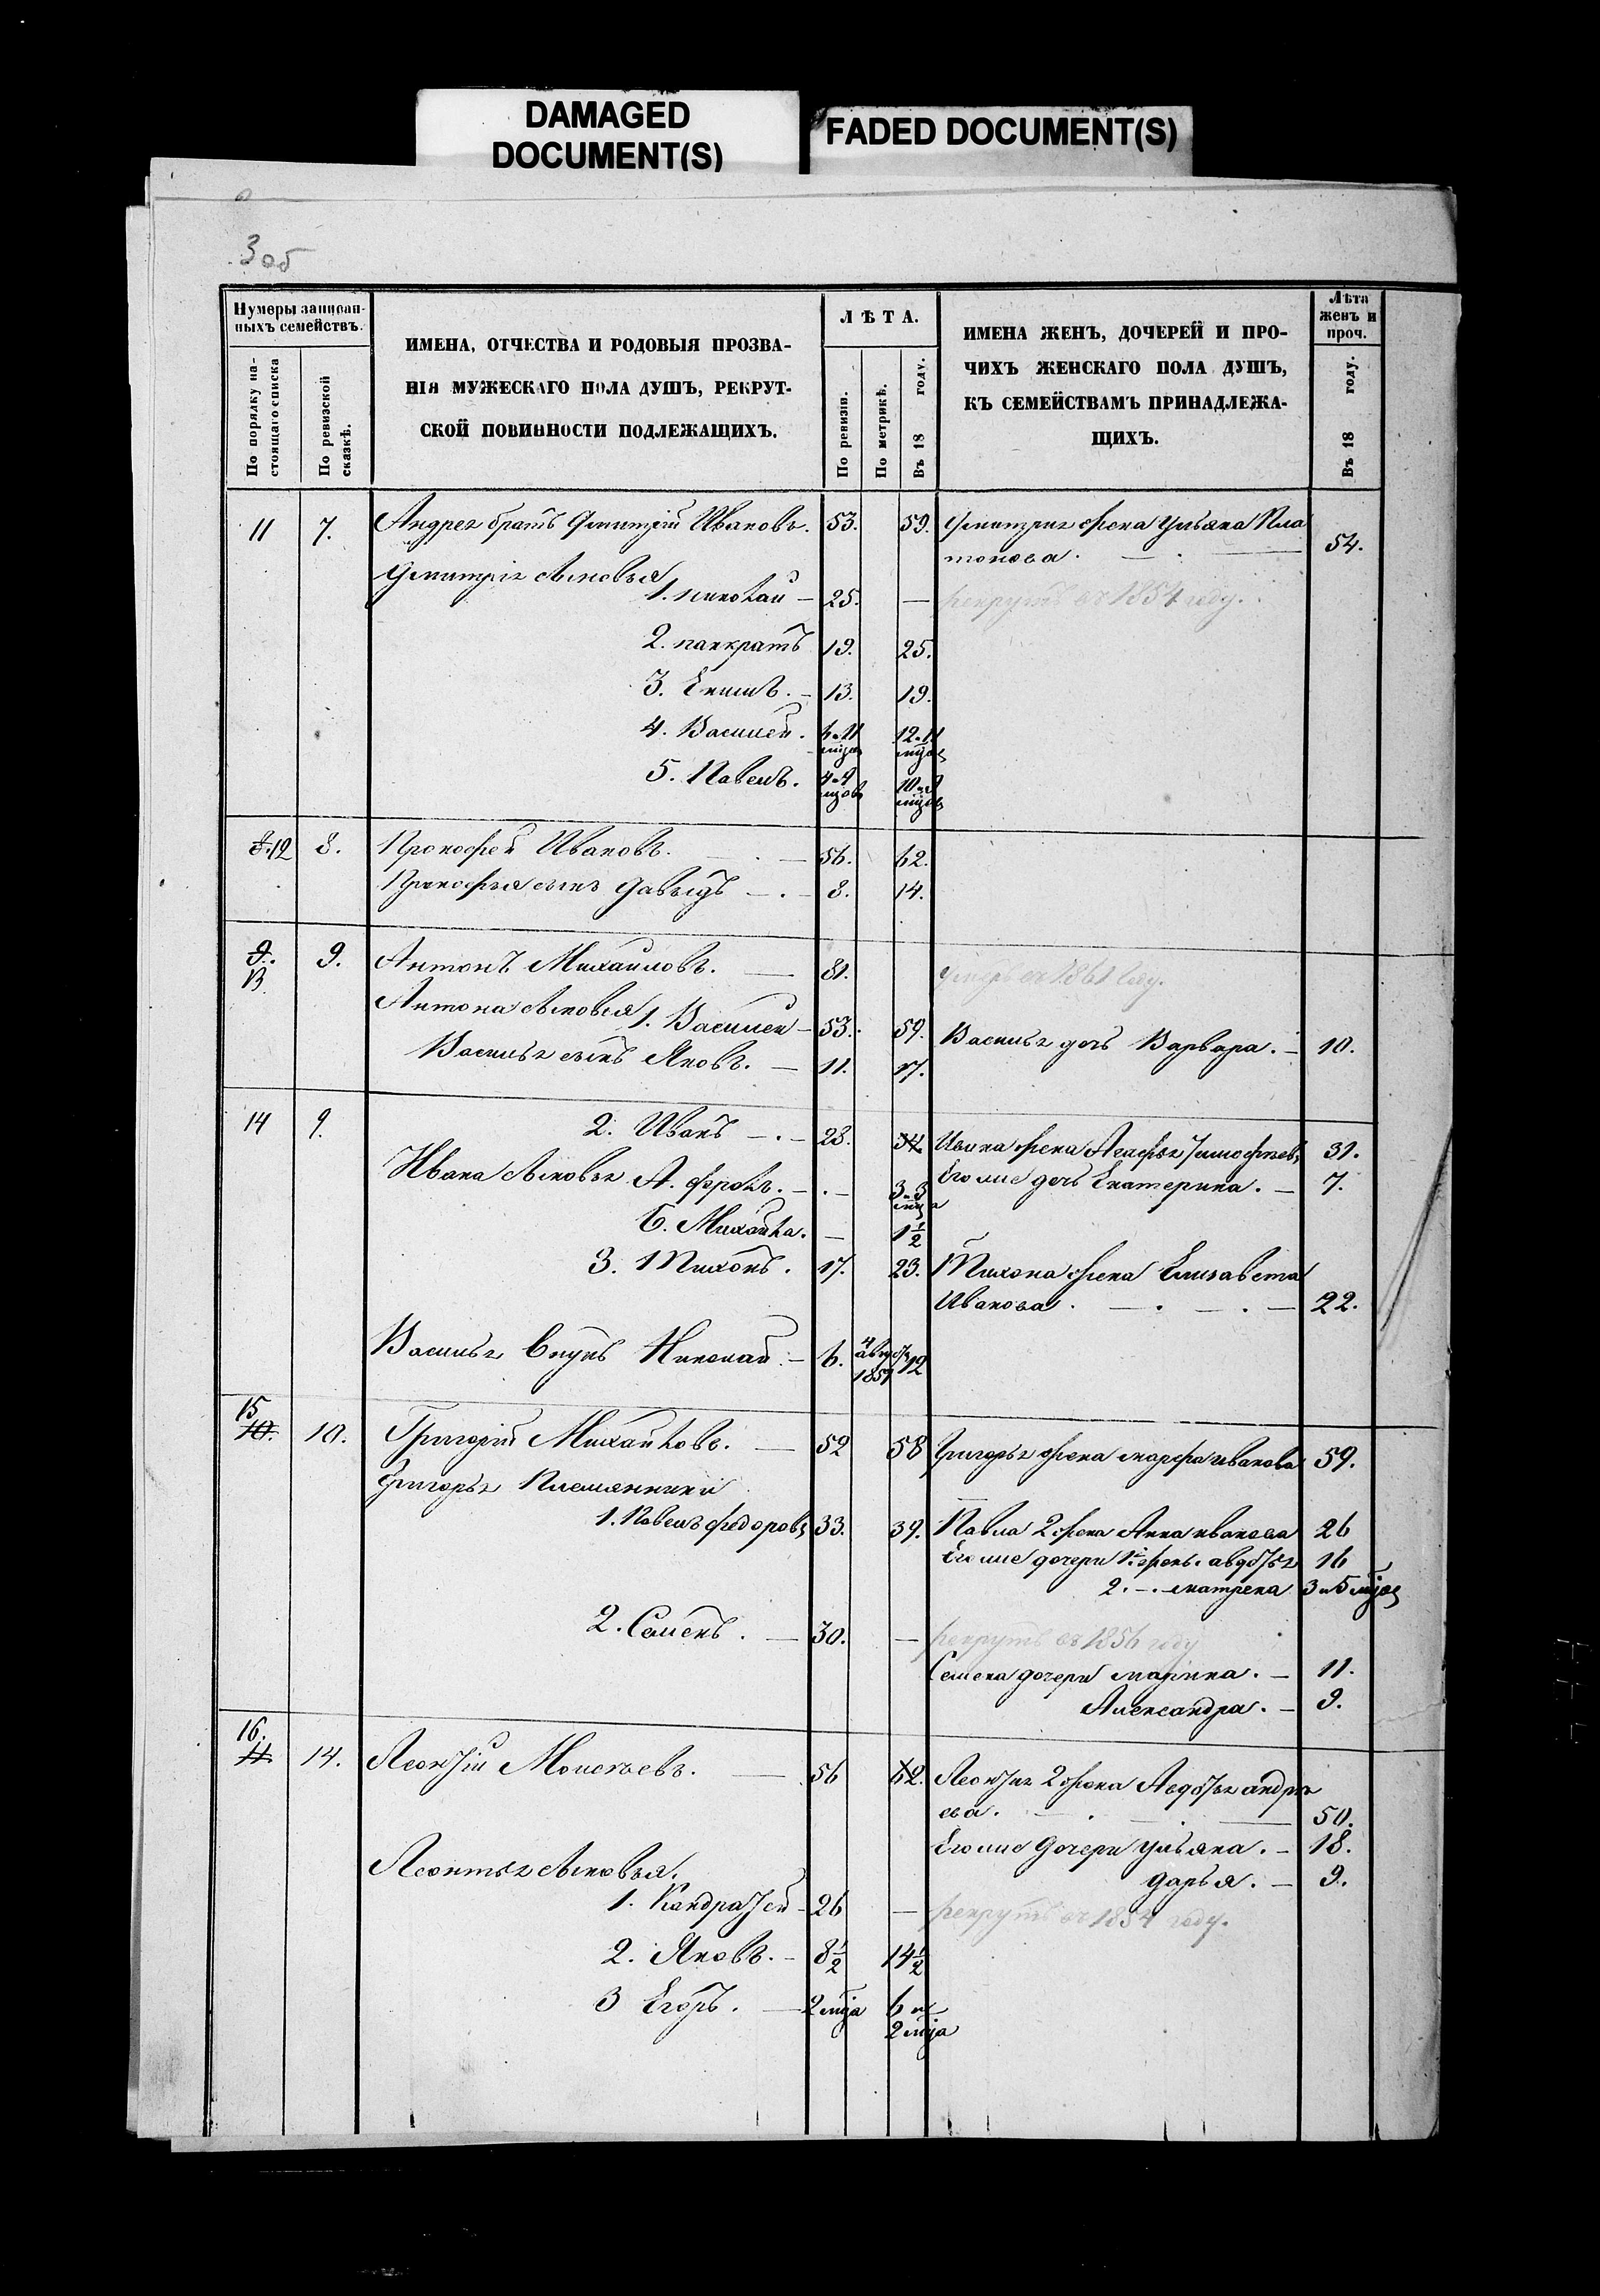 DAMAGED
DOCUMENT(S)
FADED DOCUMENT(S)
3 об
Нумеры записан-
ныхъ семействъ.
По порядку на-
стоящаго списка
По ревизской
сказкѣ.
ИМЕНА, ОТЧЕСТВА И РОДОВЫЯ ПРОЗВА-
НІЯ МУЖЕСКАГО ПОЛА ДУШЪ, РЕКРУТ-
СКОЙ ПОВИННОСТИ ПОДЛЕЖАЩИХЪ.
ЛѢТА.
По ревизіи.
По метрикѣ.
Въ 18 году.
ИМЕНА ЖЕНЪ, ДОЧЕРЕЙ И ПРО-
ЧИХЪ ЖЕНСКАГО ПОЛА ДУШЪ,
КЪ СЕМЕЙСТВАМЪ ПРИНАДЛЕЖА-
ЩИХЪ.
Лѣта
женъ и
проч.
Въ 18 году.
11 7. Андрея братъ Дмитрій Ивановъ. 53. 59. Дмитрія жена Ульяна Пла
тонова. 54.
Дмитрія сыновья
1. Николай 25. — рекрутъ въ 1854 году.
2. панкратъ 19. 25.
3. Екимъ. 13. 19.
4. Василей. 6 и 11 12 и 11
мѣсяц мѣсяц
5. Павелъ. 4 и 9 10 и 9
8. 12 8. Прокофей Ивановъ. 56. 62.
Прокофья сынъ Давыдъ 8. 14.
9. 13 9. Антонъ Михайловъ. 81. умеръ въ 1861 году.
Антона сыновья 1. Василей 53. 59. Василья дочь Варвара. 10.
Василья сынъ Яковъ. 11. 17.
14 9. 2. Иванъ 28. 34. Ивана жена Агафья Тимофѣев 31.
Ивана сыновья А. фролъ. 3 и 3 Его же дочь Екатерина. 7.
Б. Михайла. 1½
3. Тихонъ. 17. 23. Тихона жена Елизавета
Иванова. 22.
Василья внукъ Николай. 6. 4 1851 12
15 10. 10. Григорій Михайловъ. 52 58 Григорья жена марфа иванова 59.
Григорья Племянники
1. Павелъ федоровъ 33. 39. Павла 2 жена Анна иванова 26
Его же дочери 1й жены. авдотья 16
2. матрена 3 и 5 мѣсяц
2. Семенъ. 30. — рекрутъ въ 1856 году
Семена дочери марина. 11.
Александра. 9.
16. 11. 14. Леонтій Моисеевъ. 56 62. Леонтія 2 жена Авдотья андрѣ
ева. 50.
Его же дочери ульяна. 18.
Леонтья сыновья. дарья. 9.
1. Кондратей 26 — рекрутъ въ 1854 году.
2. Яковъ. 8½ 14½
3 Егоръ. 2 мѣсяца 6 и
2 мѣсяца